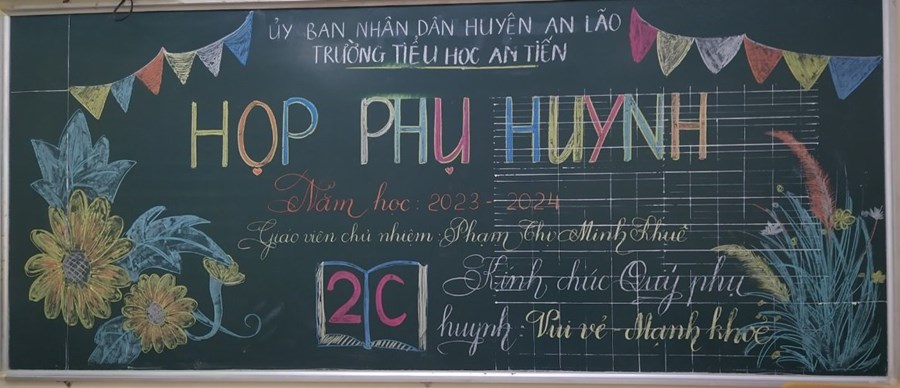 ỦY BAN NHÂN DÂN HUYỆN AN LÃO
TRƯỜNG TIỂU HỌC AN TIẾN
HỌP PHỤ HUYNH
Năm học: 2023 - 2024
Giáo viên chủ nhiệm: Phạm Thị Minh Khuê
2C
Kính chúc Quý phụ
huynh: Vui vẻ - Mạnh khỏe